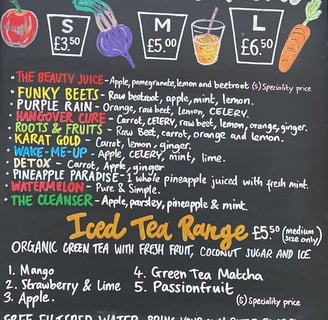 S
£3.50
M
£5.00
L
£6.50
• THE BEAUTY JUICE - Apple, pomegranate, lemon and beetroot (S) Speciality price
• FUNKY BEETS - Raw beetroot, apple, mint, lemon.
• PURPLE RAIN - Orange, raw beet, lemon, CELERY.
• HANGOVER CURE - Carrot, CELERY, raw beet, lemon, orange, ginger.
• ROOTS & FRUITS - Raw Beet, carrot, orange and lemon.
• KARAT GOLD - Carrot, lemon, ginger.
• WAKE-ME-UP - Apple, CELERY, mint, lime.
• DETOX - Carrot, Apple, ginger
• PINEAPPLE PARADISE - 1 whole pineapple juiced with fresh mint.
• WATERMELON - Pure & Simple.
• THE CLEANSER - Apple, parsley, pineapple & mint.
Iced Tea Range £5.50 (medium size only)
ORGANIC GREEN TEA WITH FRESH FRUIT, COCONUT SUGAR AND ICE
1. Mango
2. Strawberry & Lime
3. Apple.
4. Green Tea Matcha
5. Passionfruit
(S) Speciality price
FREE FILTERED WATER